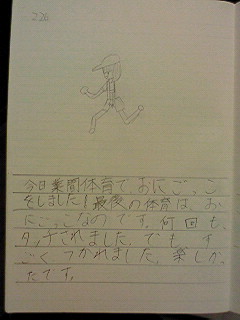 2.26
今日業間体育でおにごっこ
をしました!最後の体育は、お
にごっこなのです。何回も、
タッチされました。でも、す
ごくつかれました。楽しかっ
たです。